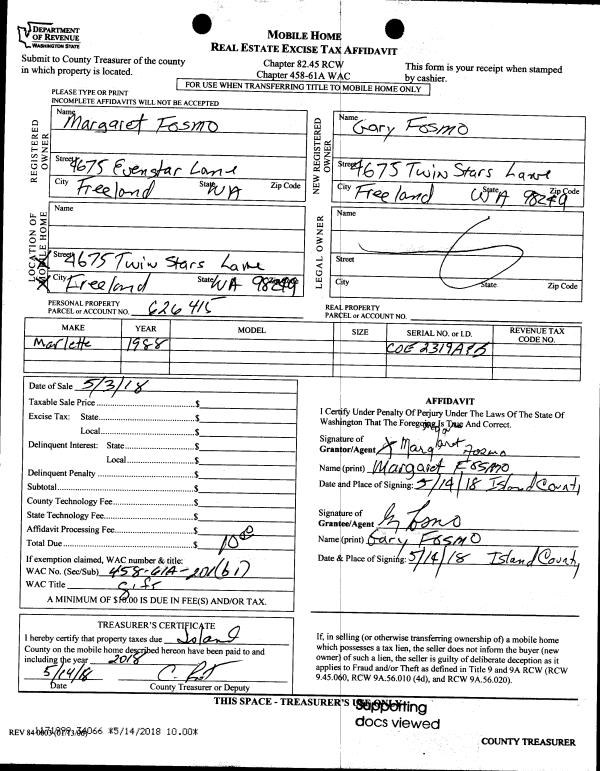 DEPARTMENT
OF REVENUE
WASHINGTON STATE
MOBILE HOME
REAL ESTATE EXCISE TAX AFFIDAVIT
Submit to County Treasurer of the county
in which property is located.
Chapter 82.45 RCW
Chapter 458-61A WAC
This form is your receipt when stamped
by cashier.
FOR USE WHEN TRANSFERRING TITLE TO MOBILE HOME ONLY
PLEASE TYPE OR PRINT
INCOMPLETE AFFIDAVITS WILL NOT BE ACCEPTED
REGISTERED OWNER
Name
Margaret Fosmo
Street 4675 Evenstar Lane
City Freeland State WA Zip Code
NEW REGISTERED OWNER
Name Gary Fosmo
Street 4675 Twin Stars Lane
City Freeland State WA Zip Code 98249
LOCATION OF MOBILE HOME
Name
Street 4675 Twin Stars Lane
City Freeland State WA Zip Code 98249
LEGAL OWNER
Name
Street
City State Zip Code
PERSONAL PROPERTY
PARCEL or ACCOUNT NO. 626415
REAL PROPERTY
PARCEL or ACCOUNT NO.
MAKE YEAR MODEL SIZE SERIAL NO. or I.D. REVENUE TAX CODE NO.
Marlette 1988
Date of Sale 5/3/18
Taxable Sale Price $
Excise Tax: State $
Local $
Delinquent Interest: State $
Local $
Delinquent Penalty $
Subtotal $
County Technology Fee $
State Technology Fee $
Affidavit Processing Fee $
Total Due $ 10
If exemption claimed, WAC number & title:
WAC No. (Sec/Sub) 458-61A-201(b1)
WAC Title Gift
A MINIMUM OF $10.00 IS DUE IN FEE(S) AND/OR TAX.
AFFIDAVIT
I Certify Under Penalty Of Perjury Under The Laws Of The State Of
Washington That The Foregoing Is True And Correct.
Signature of
Grantor/Agent X Margaret Fosmo
Name (print) Margaret Fosmo
Date and Place of Signing: 5/14/18 Island County
Signature of
Grantee/Agent
Name (print) Gary Fosmo
Date & Place of Signing: 5/14/18 Island County
TREASURER'S CERTIFICATE
I hereby certify that property taxes due Island
County on the mobile home described hereon have been paid to and
including the year 2018
5/14/18
Date County Treasurer or Deputy
If, in selling (or otherwise transferring ownership of) a mobile home
which possesses a tax lien, the seller does not inform the buyer (new
owner) of such a lien, the seller is guilty of deliberate deception as it
applies to Fraud and/or Theft as defined in Title 9 and 9A RCW (RCW
9.45.060, RCW 9A.56.010 (4d), and RCW 9A.56.020).
THIS SPACE - TREASURER'S USE ONLY
Supporting
docs viewed
*5/14/2018 10.00*
COUNTY TREASURER